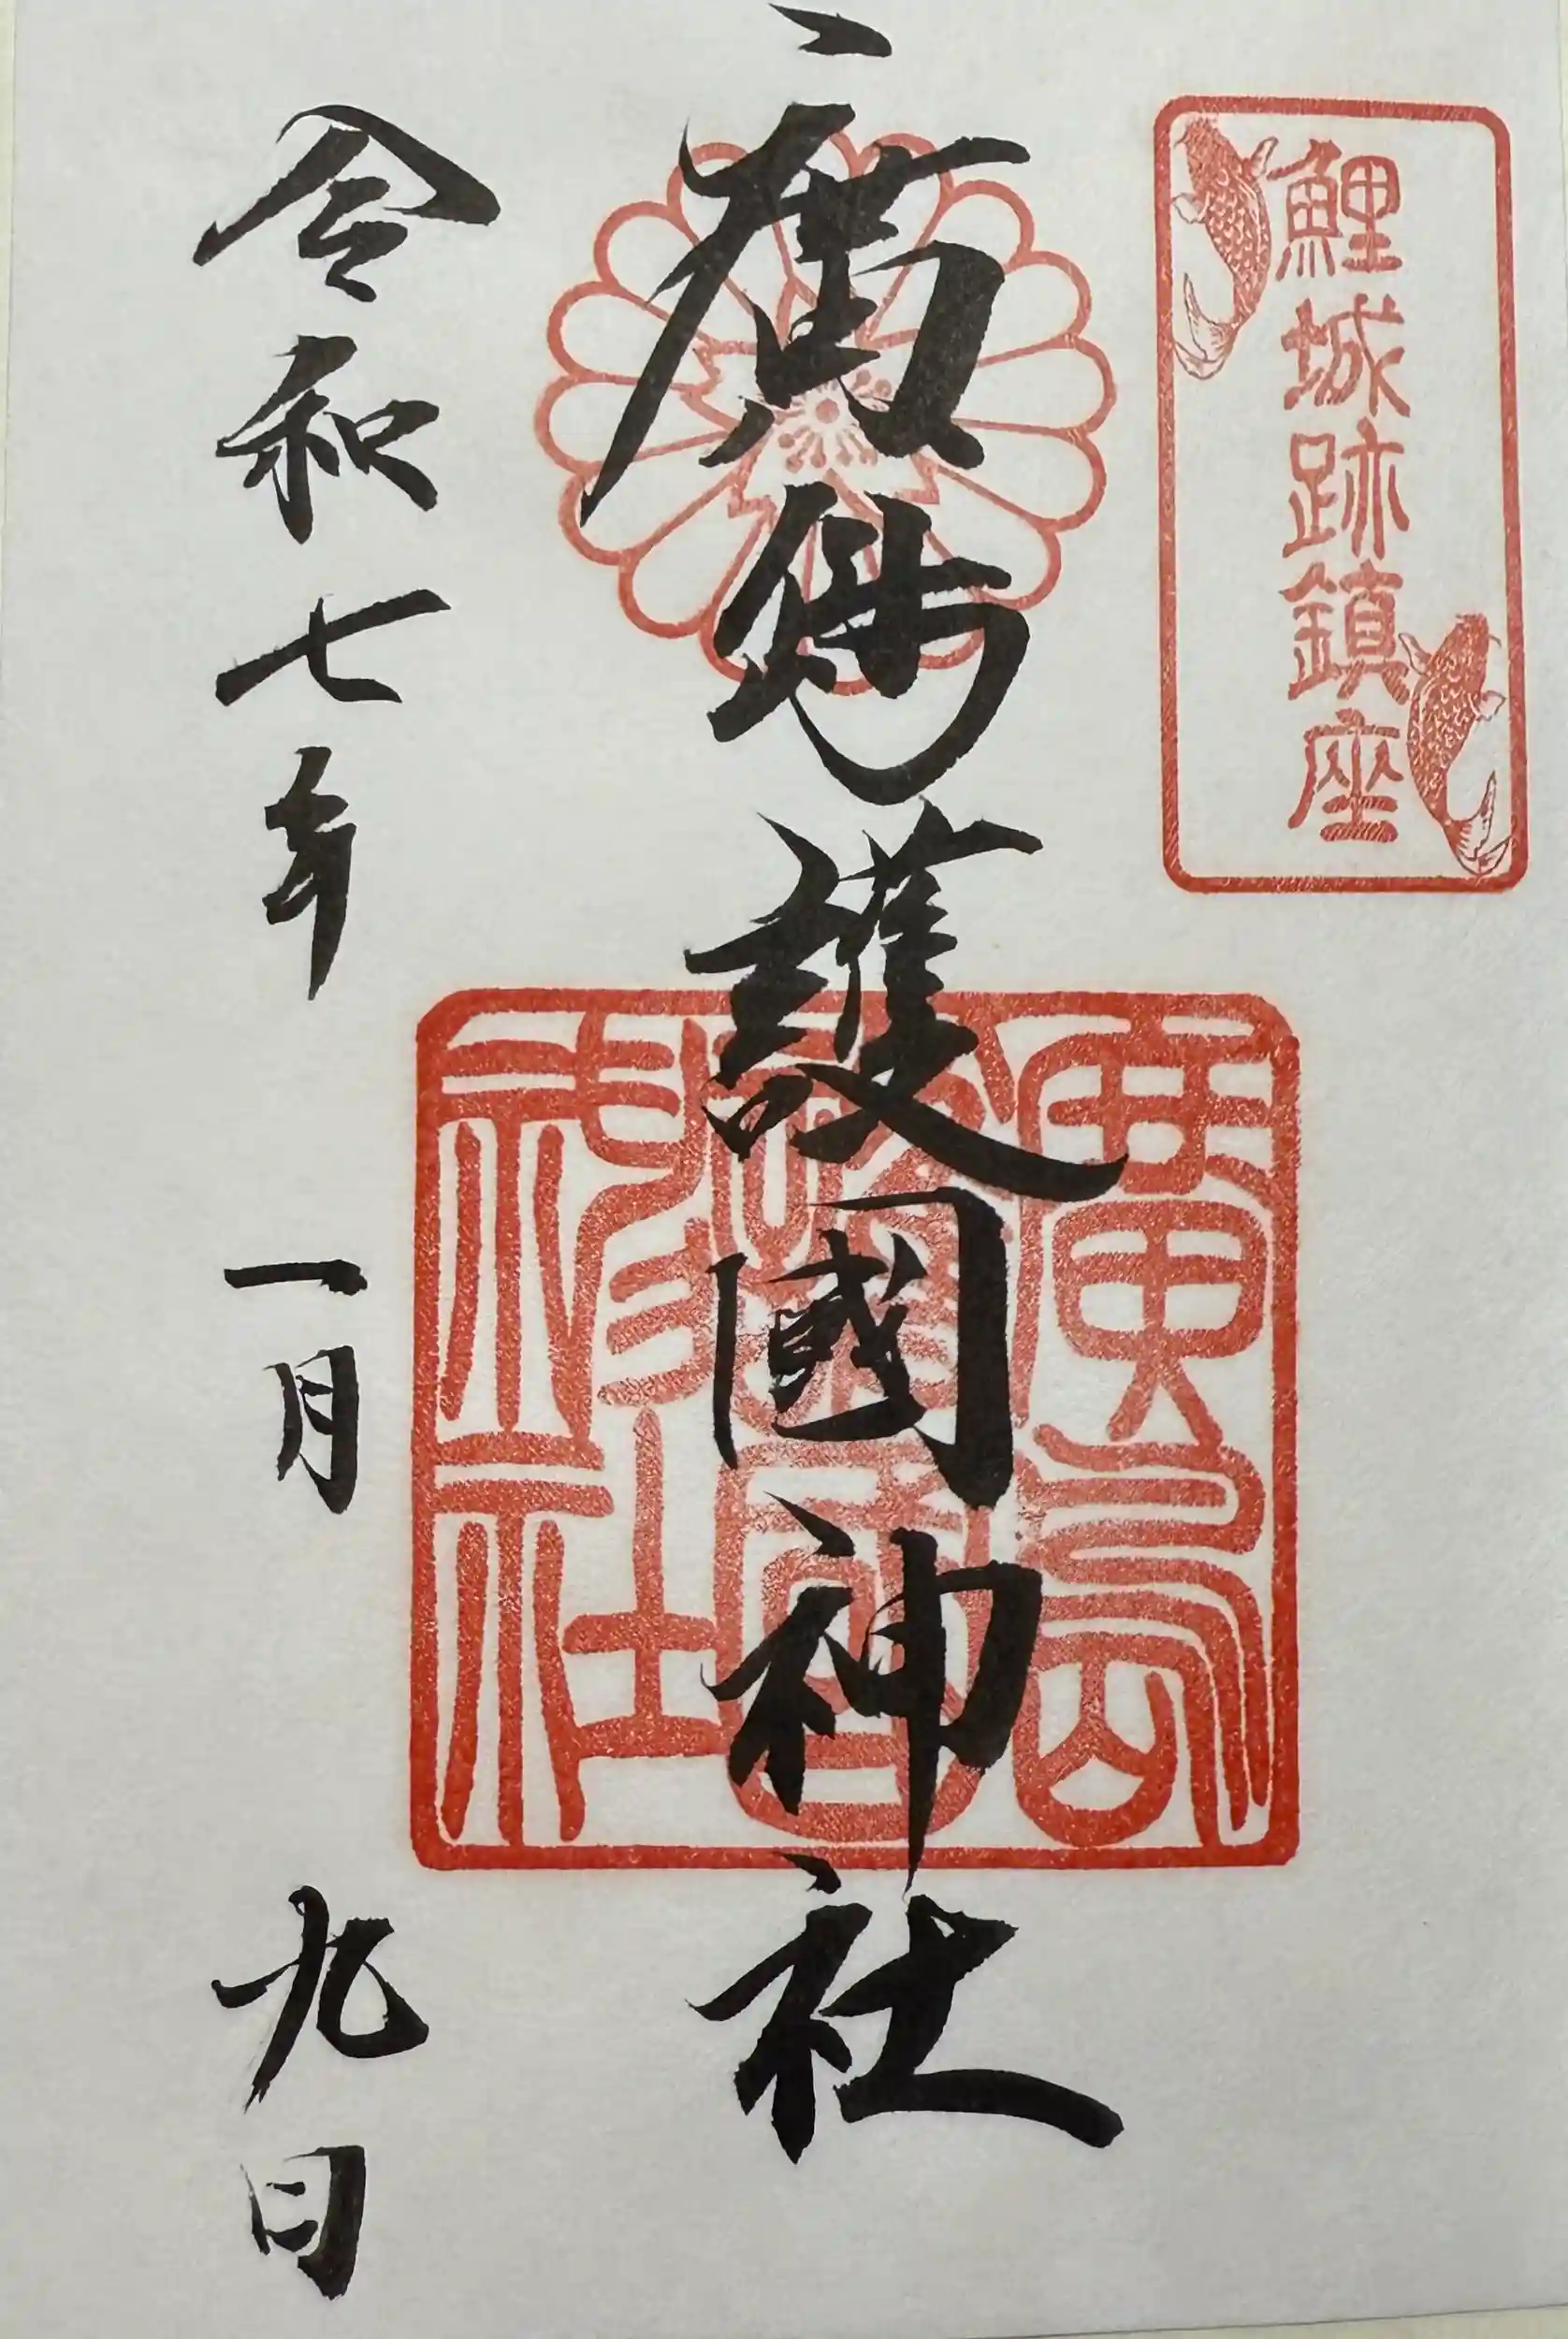 鯉城跡鎮座
廣島護國神社
廣島護國神社
令和七年一月九日